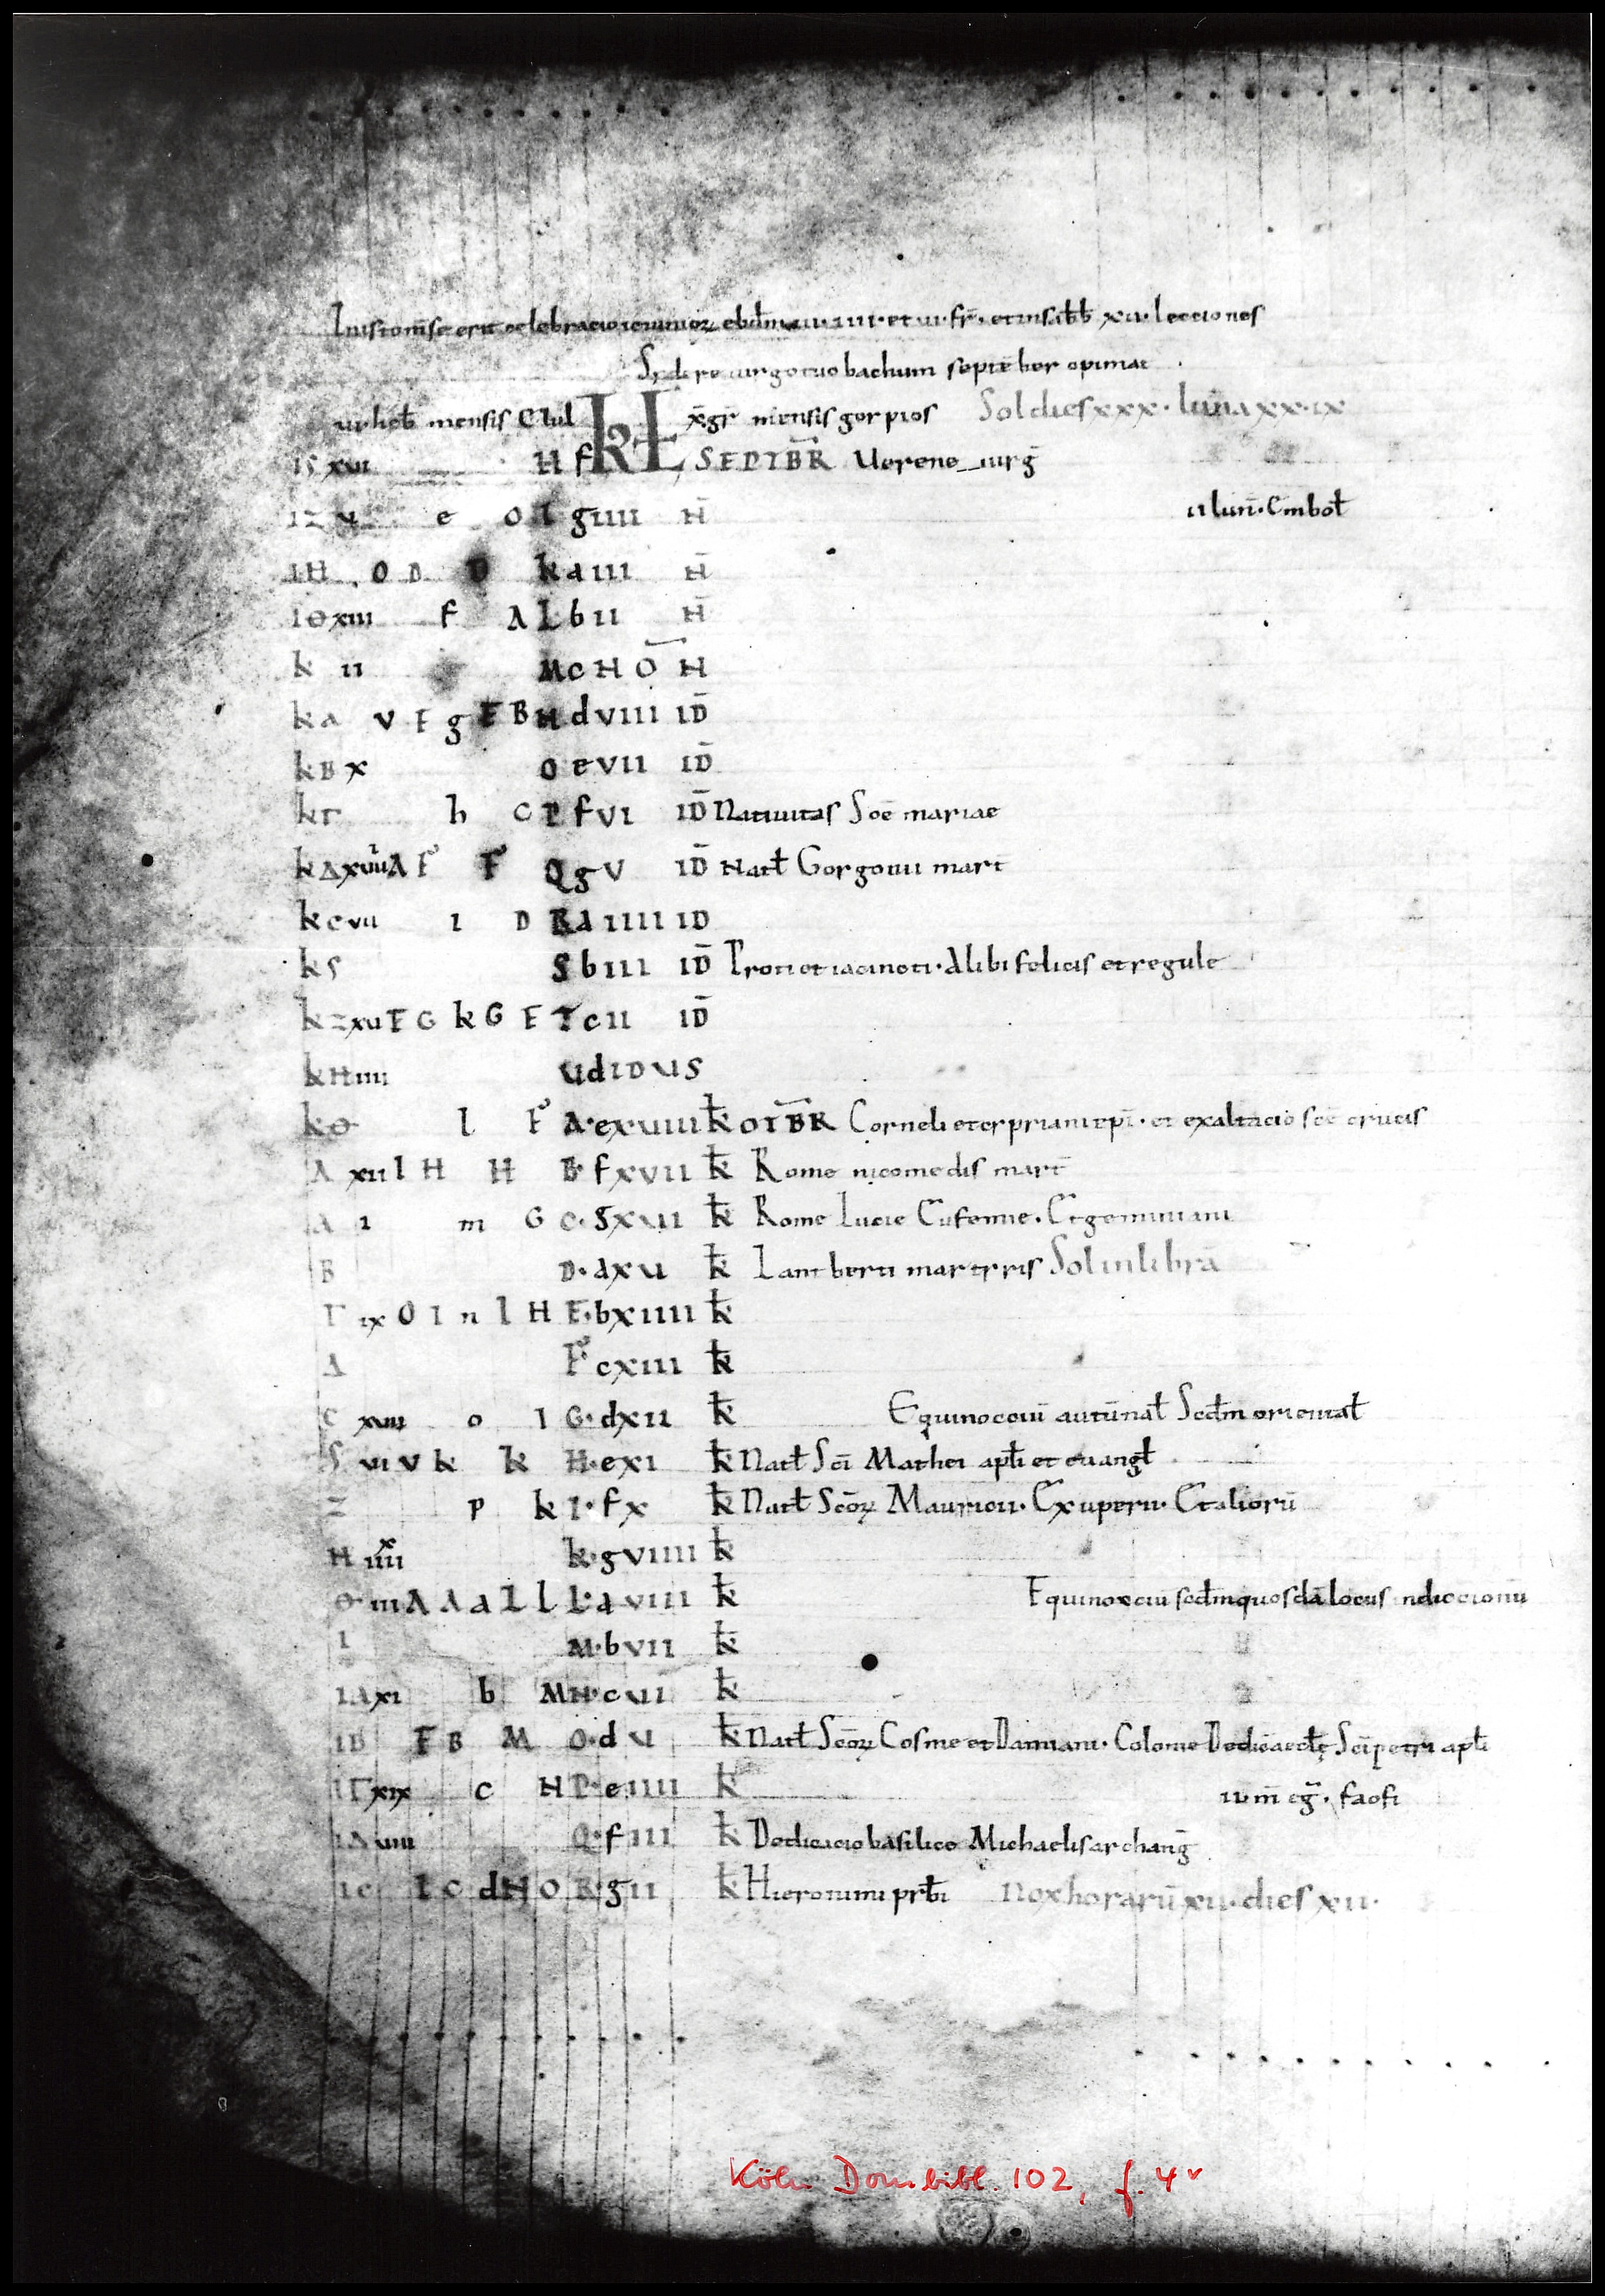 erit celebracio ieiuniorꝝ ebdm̄ et vi fr̄ et in sabb̄ xii lecciones
Sydere uirgo tuo bachum septēber opimat
heb̄ mensis Elul KL x̄ gr̄ mensis gorpios Sol dies xxx. luna xx.ix
H f SEPTBR̄ Uerene uirḡ
e O I g iiii N̄ 11 lun̄. Embol̄
IH O D D k a iii N̄
IΘ xiii f A L b ii N̄
k ii M c NŌ N
k a v F g F B N d viii ID̄
k B x O e vii ID̄
k Γ h C P f vi ID̄ Natiuitas Scē mariae
k Δ A F F Q g v ID̄ Natl̄ Gorgonii mart̄
k e vii i D R a iiii ID
k s S b iii ID̄ Proti et iacincti. Alibi felicis et regule
k z xv F G k G E T c ii ID̄
k H iiii U d IDUS
k Θ l F A. e xviiii k̄ OTBR̄ Corneli et cypriani epī. et exaltacio scē crucis
A xii l H H B. f xvii k̄ Rome nicomedis mart̄
A i m G C. g xvi k̄ Rome Lucie Eufemie. Et geminiani
B D. a xv k̄ Lantberti martyris Sol in librā
Γ ix O I n l H E. b xiiii k̄
Δ F c xiii k̄
e xvii o I G. d xii k̄ Equinoccū autūnal̄ Scdm̄ oriental̄
S vi v k k H. e xi k̄ Natl̄ Scī Mathei apl̄i et euangl̄
Z p k I. f x k̄ Natl̄ Scōꝝ Mauricii. Exuperii. Et aliorū
H xiiii k. g viiii k̄
Θ iii A A a L l L. a viii k̄ Equinoxciū scdm̄ quosdā locus indiccionū
I M. b vii k̄
IA xi b M N. c vi k̄
IB F B M O. d v k̄ Natl̄ Scōꝝ Cosme et Damiani. Colonie Dedicā ecl̄ę Scī petri apl̄i
IΓ xix c N P. e iiii k̄ m̄ eḡ. faofi
IΔ viii Q. f iii k̄ Dedicacio basilice Michaelis archanḡ
Ie I C d N O R. g ii k̄ Hieronimi prb̄i Nox horarū xii. dies xii.
Köln Dombibl. 102, f. 4ᵛ